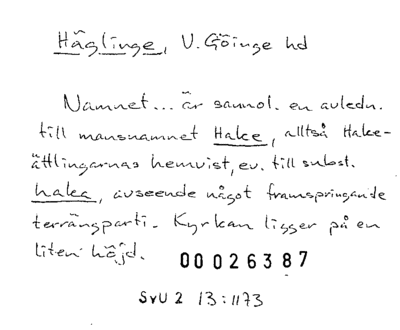 Häglinge, V. Göinge hd
Namnet... är sannol. en avledn.
till mansnamnet Hake, alltså Hake-
ättlingarnas hemvist, ev. till subst.
haka, avseende något framspringande
terrängparti. Kyrkan ligger på en
liten höjd.
00026387
SvU 2 13:1173